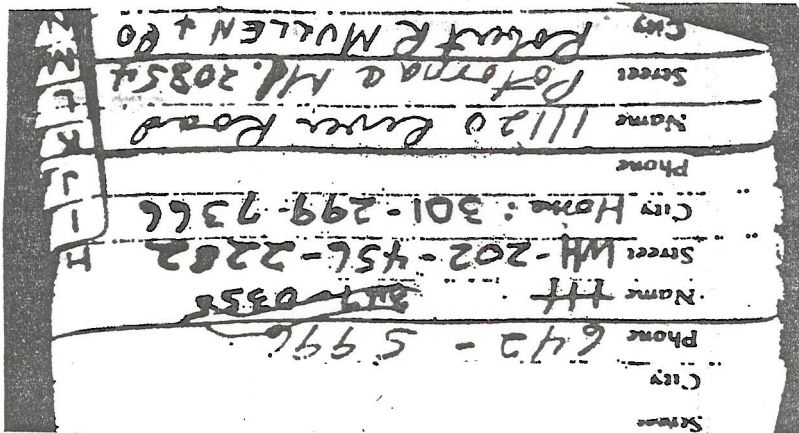 Street
City
Phone 642 - 5996
Name HH
Street WH-202-456-2282 H
City Home: 301-299-7366 I
Phone J
Name 11120 River Road K
Street Potomac Md. 20854 L
City Robert R MULLEN + CO M
N